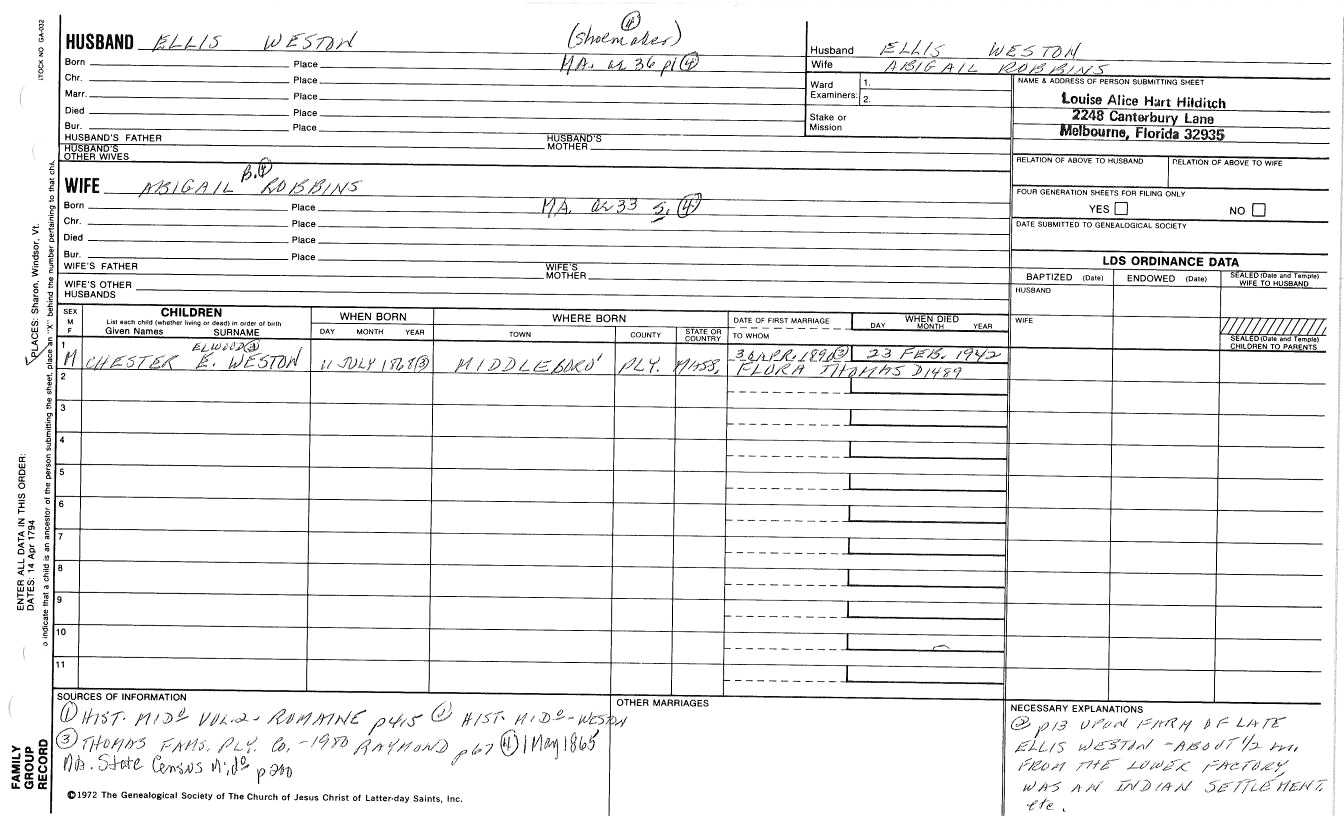 STOCK NO. GA-032
HUSBAND ELLIS WESTON (shoemaker) ④
Born Place MA. æ 36 p1 ④
Chr. Place
Marr. Place
Died Place
Bur. Place
HUSBAND'S FATHER HUSBAND'S MOTHER
HUSBAND'S OTHER WIVES
Husband ELLIS WESTON
Wife ABIGAIL ROBBINS
Ward Examiners: 1.
2.
Stake or Mission
NAME & ADDRESS OF PERSON SUBMITTING SHEET
Louise Alice Hart Hilditch
2248 Canterbury Lane
Melbourne, Florida 32935
RELATION OF ABOVE TO HUSBAND RELATION OF ABOVE TO WIFE
FOUR GENERATION SHEETS FOR FILING ONLY
YES NO
DATE SUBMITTED TO GENEALOGICAL SOCIETY
WIFE ABIGAIL B.④ ROBBINS
Born Place MA. æ 33 S. ④
Chr. Place
Died Place
Bur. Place
WIFE'S FATHER WIFE'S MOTHER
WIFE'S OTHER HUSBANDS
LDS ORDINANCE DATA
BAPTIZED (Date) ENDOWED (Date) SEALED (Date and Temple) WIFE TO HUSBAND
HUSBAND
WIFE
SEALED (Date and Temple) CHILDREN TO PARENTS
SEX M F
CHILDREN
List each child (whether living or dead) in order of birth
Given Names SURNAME
WHEN BORN
DAY MONTH YEAR
WHERE BORN
TOWN COUNTY STATE OR COUNTRY
DATE OF FIRST MARRIAGE
TO WHOM
WHEN DIED
DAY MONTH YEAR
1 M CHESTER E. ELWOOD WESTON 11 JULY 1868③ MIDDLEBORO' PLY. MASS. 30 APR. 1890③ 23 FEB. 1942
FLORA THOMAS D1489
2
3
4
5
6
7
8
9
10
11
SOURCES OF INFORMATION
① HIST. MIDº VOL.2 - ROMAINE p415 ② HIST. MIDº - WESTON
③ THOMAS FAMS. PLY. Co. - 1980 RAYMOND p67 ④ 1 May 1865
MA. State Census Midº p200
OTHER MARRIAGES
NECESSARY EXPLANATIONS
② p13 UPON FARM OF LATE
ELLIS WESTON - ABOUT 1/2 mi.
FROM THE LOWER FACTORY,
WAS AN INDIAN SETTLEMENT.
etc.
©1972 The Genealogical Society of The Church of Jesus Christ of Latter-day Saints, Inc.
FAMILY GROUP RECORD
ENTER ALL DATA IN THIS ORDER:
DATES: 14 Apr 1794
PLACES: Sharon, Windsor, Vt.
o indicate that a child is an ancestor of the person submitting the sheet, place an "X" behind the number pertaining to that chi.